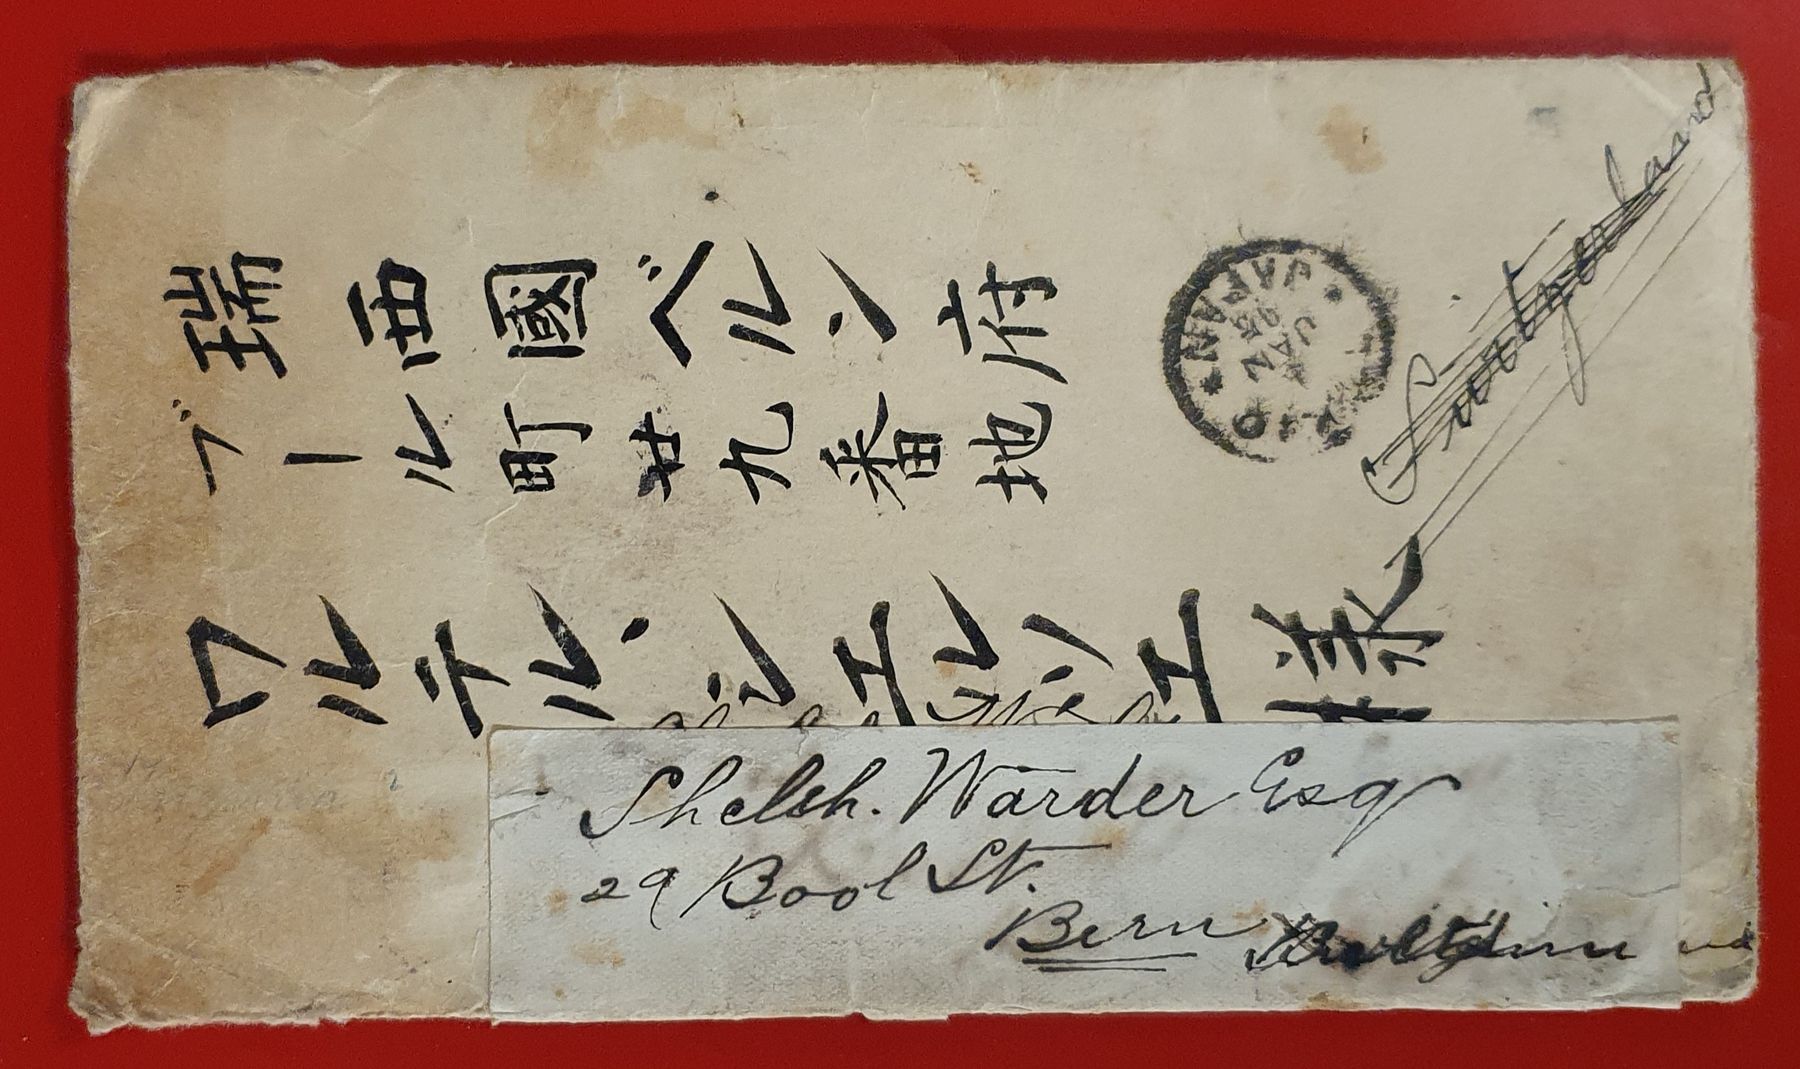 瑞西國ベルン府
ブール町廿九番地
ワルテル、シエルツエ様
JAPAN
7 JAN
95
Switzerland
Shelsh. Warder Esq
29 Bool St.
Bern